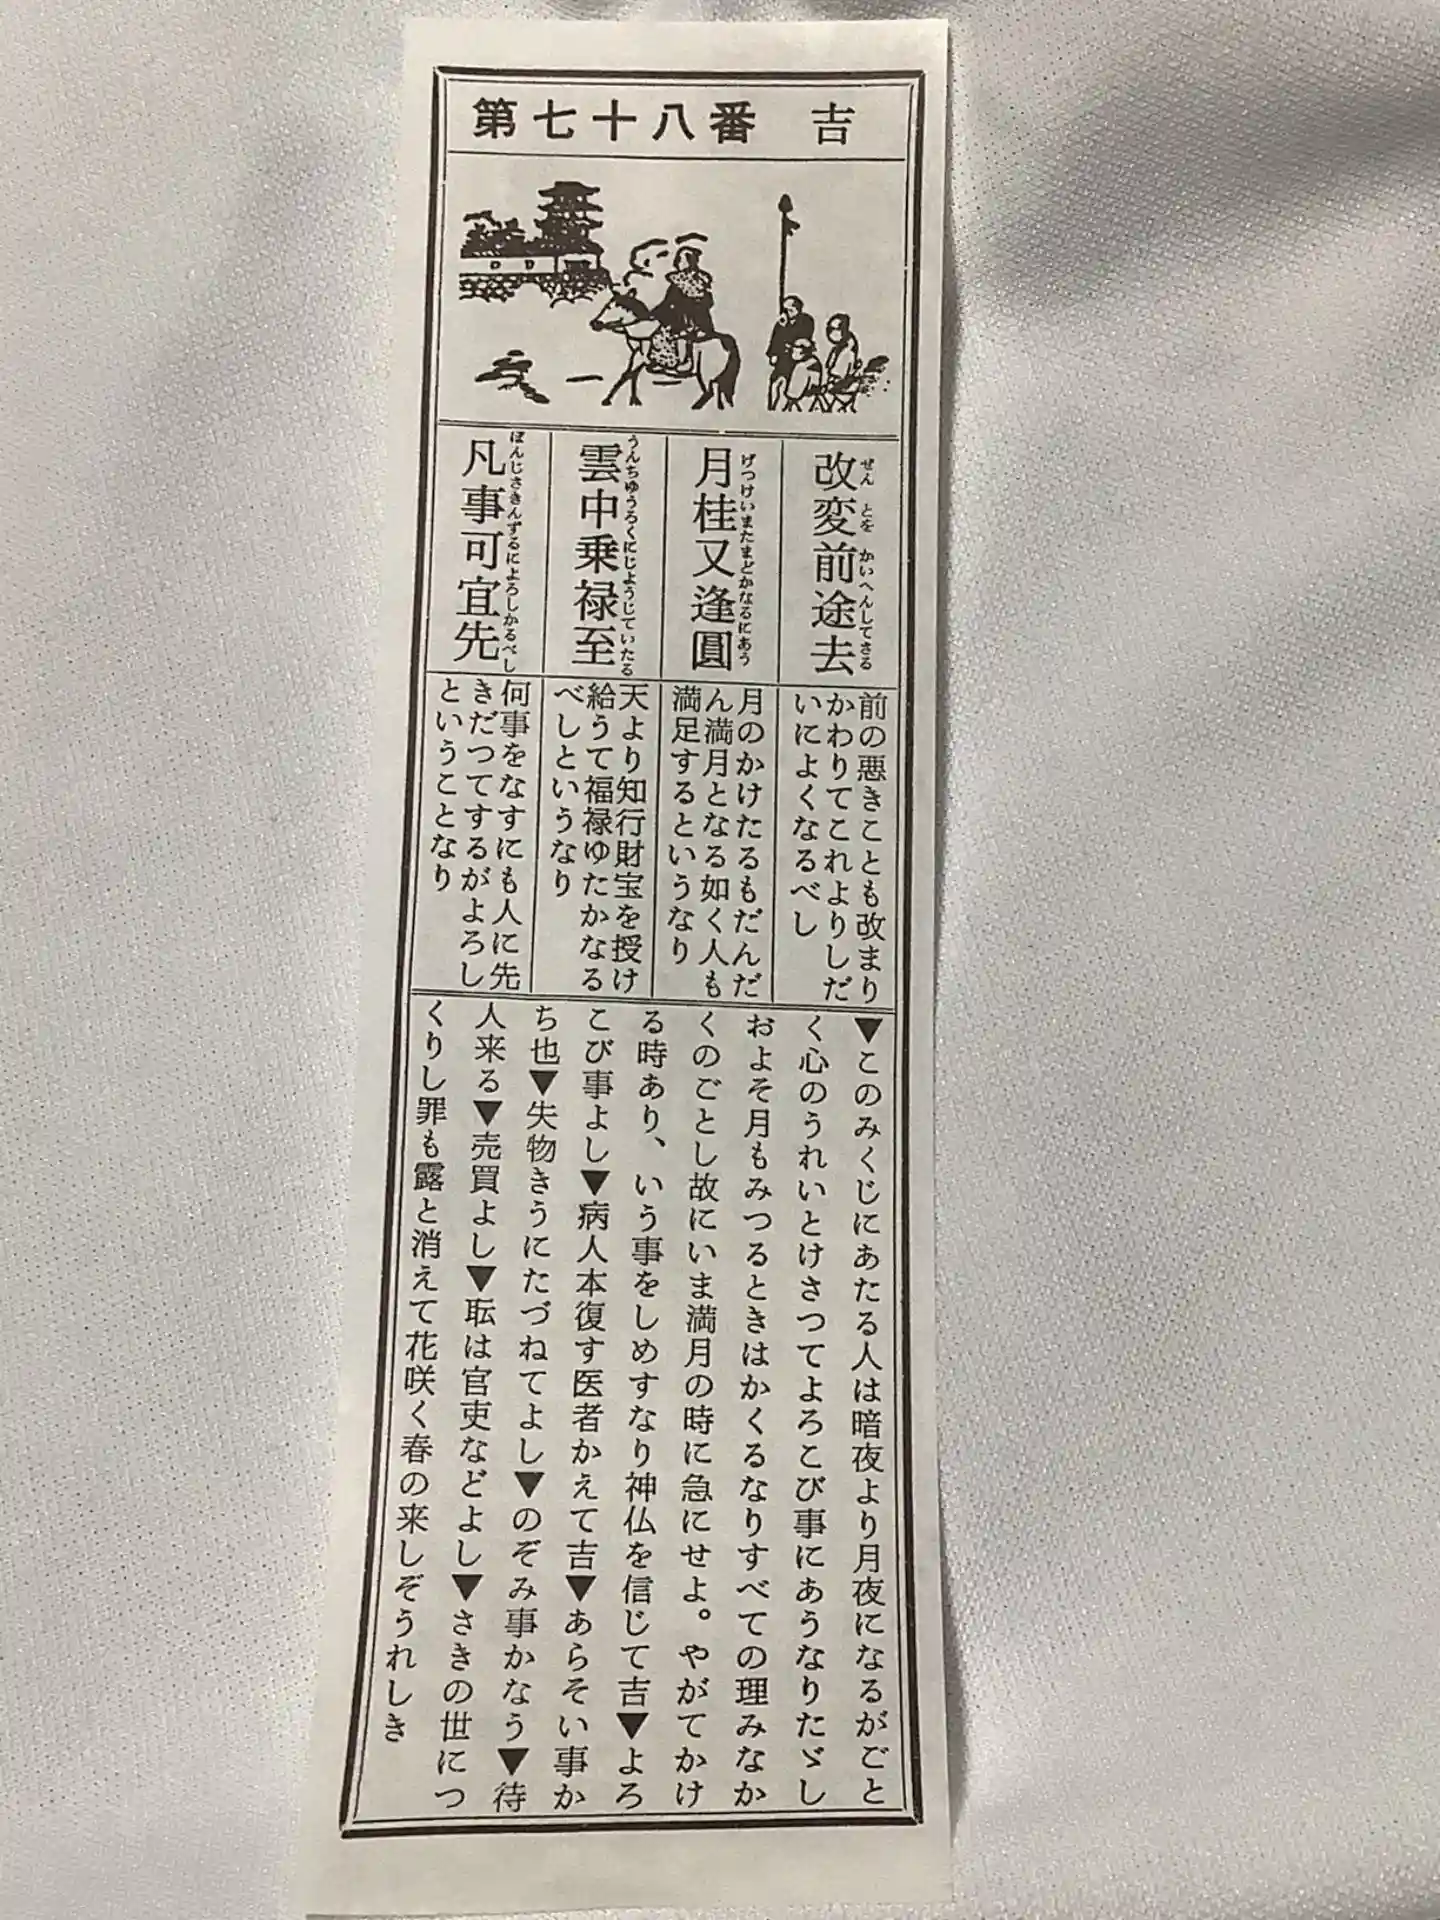 第七十八番 吉
改変前途去
ぜん とを かいへんしてさる
月桂又逢圓
げつけいまたまどかなるにあう
雲中乗禄至
うんちゆうろくにじようじていたる
凡事可宜先
ぼんじさきんずるによろしかるべし
前の悪きことも改まり
かわりてこれよりしだ
いによくなるべし
月のかけたるもだんだ
ん満月となる如く人も
満足するというなり
天より知行財宝を授け
給うて福禄ゆたかなる
べしというなり
何事をなすにも人に先
きだつてするがよろし
ということなり
▼このみくじにあたる人は暗夜より月夜になるがごと
く心のうれいとけさつてよろこび事にあうなりたゞし
およそ月もみつるときはかくるなりすべての理みなか
くのごとし故にいま満月の時に急にせよ。やがてかけ
る時あり、いう事をしめすなり神仏を信じて吉▼よろ
こび事よし▼病人本復す医者かえて吉▼あらそい事か
ち也▼失物きうにたづねてよし▼のぞみ事かなう▼待
人来る▼売買よし▼転は官吏などよし▼さきの世につ
くりし罪も露と消えて花咲く春の来しぞうれしき